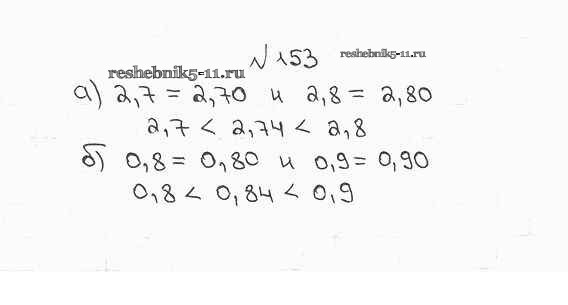 № 153
reshebnik5-11.ru
reshebnik5-11.ru
а) 2,7 = 2,70 и 2,8 = 2,80
2,7 < 2,74 < 2,8
б) 0,8 = 0,80 и 0,9 = 0,90
0,8 < 0,84 < 0,9